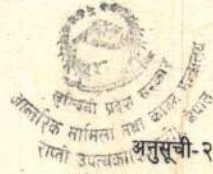 लुम्बिनी प्रदेश सरकार
आन्तरिक मामिला तथा कानून मन्त्रालय
राप्ती उपत्यका नेपाल
अनुसूची-२